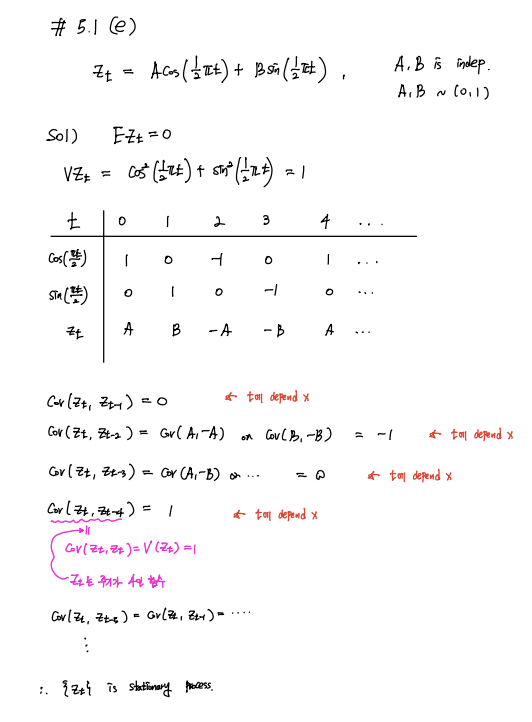 # 5.1 (e)
Zt = A Cos(½πt) + B sin(½πt) , A, B is indep.
A, B ~ (0, 1)
Sol) EZt = 0
VZt = Cos²(½πt) + sin²(½πt) = 1
t 0 1 2 3 4 ...
Cos(πt/2) 1 0 -1 0 1 ...
sin(πt/2) 0 1 0 -1 0 ...
Zt A B -A -B A ...
Cov(Zt, Zt-1) = 0 ← t에 depend X
Cov(Zt, Zt-2) = Cov(A, -A) or Cov(B, -B) = -1 ← t에 depend X
Cov(Zt, Zt-3) = Cov(A, -B) or ... = 0 ← t에 depend X
Cov(Zt, Zt-4) = 1 ← t에 depend X
Cov(Zt, Zt) = V(Zt) = 1
Zt는 주기가 4인 함수
Cov(Zt, Zt-5) = Cov(Zt, Zt-1) = ....
⋮
∴ {Zt} is stationary process.